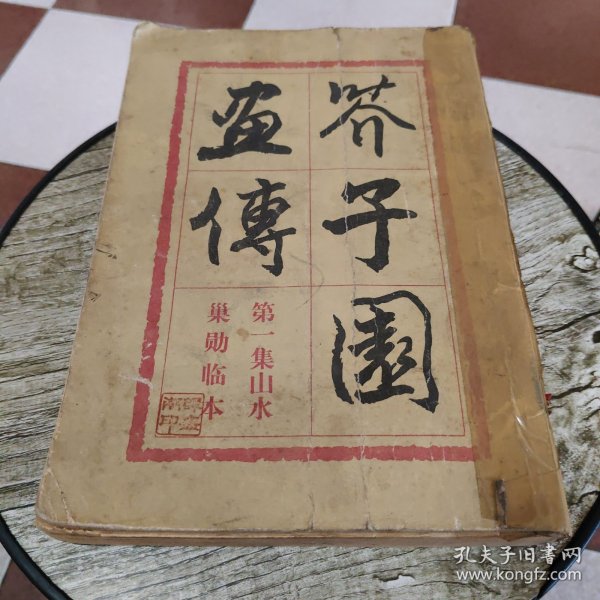 芥子園
画傳
第一集山水
巢勋临本
孔夫子旧书网
www.kongfz.com